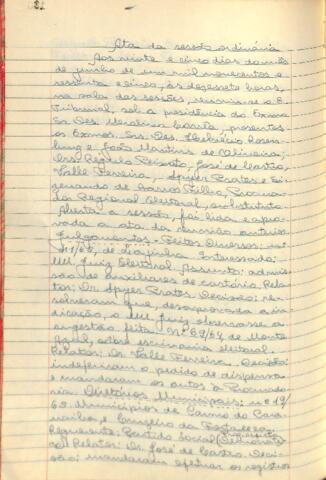 Ata da sessão ordinária
Aos vinte e cinco dias do mês
de junho de um mil novecentos e
sessenta e cinco, às dezessete horas,
na sala das sessões, reuniu-se o E.
Tribunal, sob a presidência do Exmo
Sr. Des. Merolino Corrêa, presentes
os Exmos. Srs. Des. Helvécio Rosen-
burg e João Martins de Oliveira;
Drs. Régulo Peixoto, José de Castro,
Valle Ferreira, Spyer Prates e Eu-
genando de Barros Filho, Procura-
dor Regional Eleitoral, substituto.
Aberta a sessão, foi lida e apro-
vada a ata da reunião anterior.
Julgamentos - Feitos Diversos: nº
/65, de Interessado:
MM. Juiz Eleitoral. Assunto: admis-
são de auxiliares de cartório. Rela-
tor: Dr. Spyer Prates. Decisão: re-
solveram que, desaprovada a in-
dicação, o MM. Juiz observasse a
sugestão feita. Nº 69/64, de Monte
Azul, sobre escrivania eleitoral.
Relator: Dr. Valle Ferreira. Decisão:
indeferiram o pedido de dispensa
e mandaram os autos à Procurado-
ria. Diretórios Municipais: nº 19/
65. Municípios de Carmo do Caja-
e Fortaleza.
Requerente: Partido Social Democrata
Relator: Dr. José de Castro. Deci-
são: mandaram efetuar os registros